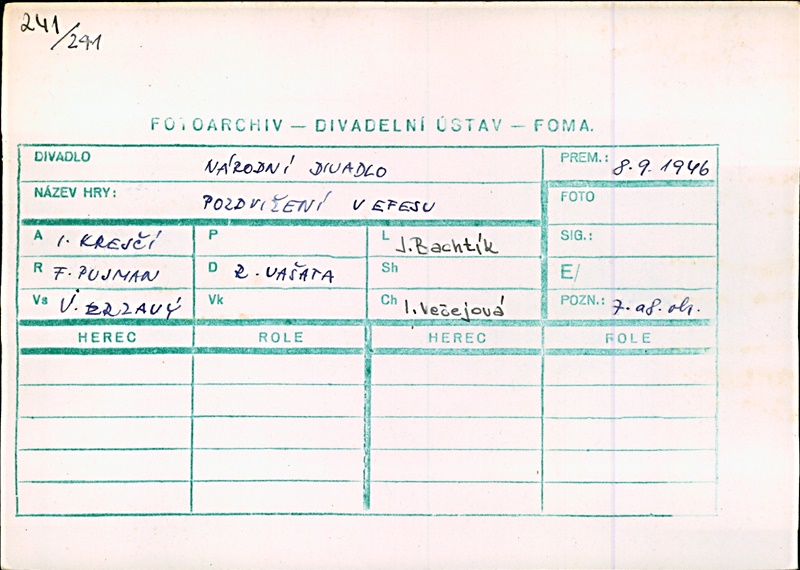 241/291
FOTOARCHIV — DIVADELNÍ ÚSTAV — FOMA.
DIVADLO NÁRODNÍ DIVADLO PREM.: 8.9.1946
NÁZEV HRY: POZDVIŽENÍ V EFESU FOTO
A I. KREJČÍ P L J. Bachtík SIG.:
R F. PUJMAN D R. VAŠATA Sh E/
Vs V. BRZAVÝ Vk Ch I. Večejová POZN.: 7.
HEREC ROLE HEREC ROLE